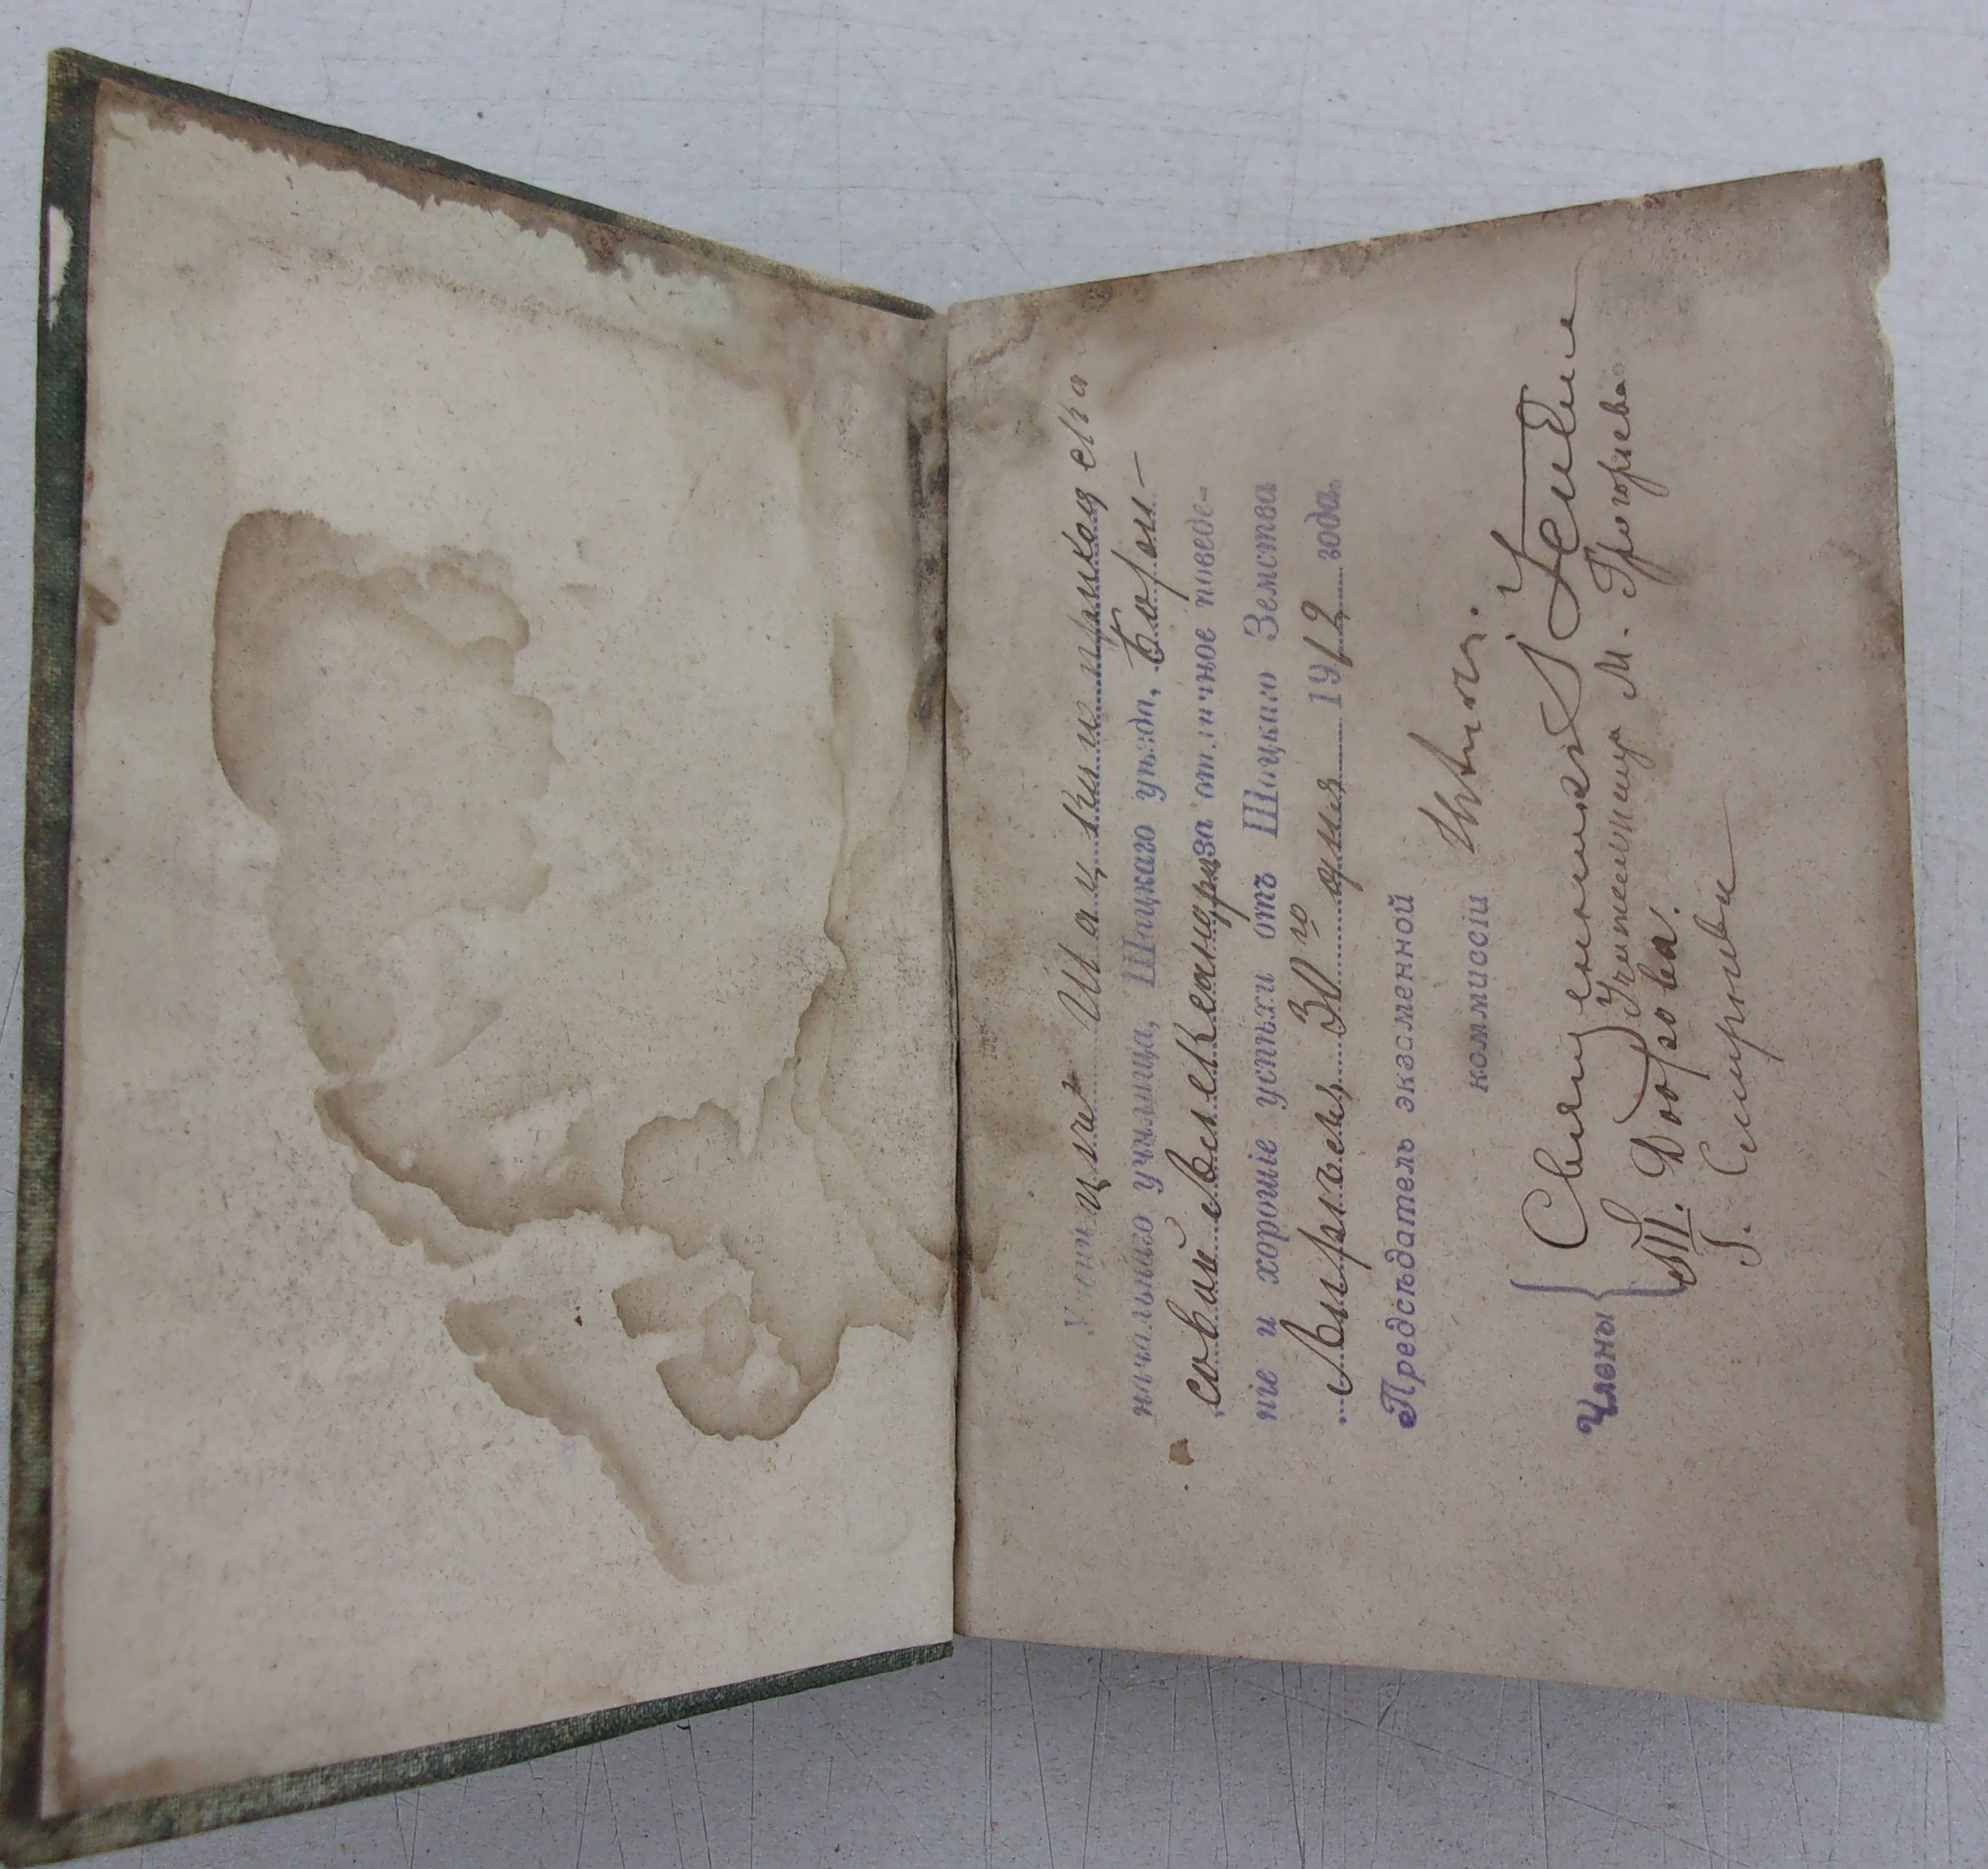 Учени цы Шацкии приходска
начальнаго училища, Шацкаго уѣзда, Бори-
совой Александрѣ за отличное поведе-
ніе и хорошіе успѣхи отъ Шацкаго Земства
Апрѣля 30го дня 1912 года.
Предсѣдатель экзаменной
коммиссіи
Члены { Священникъ
Учительницы М. Григорьева
Ш. Добров.
Смирнова